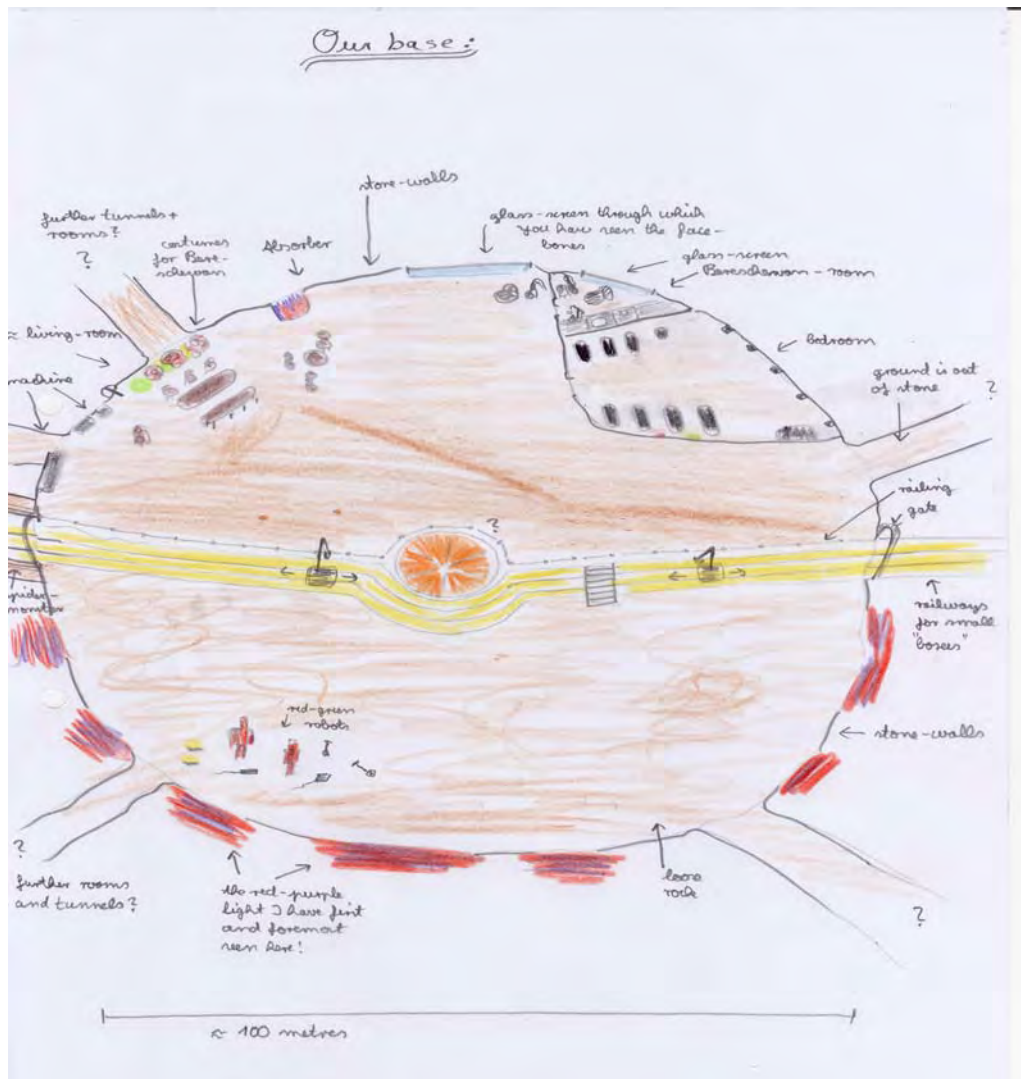 Our base:
stone-walls
further tunnels +
rooms?
?
costumes
for Bare-
schewan
Absorber
glass-screen through which
you have seen the face-
bones
glass-screen
Bareschawam-room
≈ living-room
machine
bedroom
ground is out
of stone
?
railing
gate
?
railways
for small
"boxes"
red-green
robots
← stone-walls
?
further rooms
and tunnels?
the red-purple
light I have first
and foremost
seen here!
loose
rock
?
≈ 100 metres